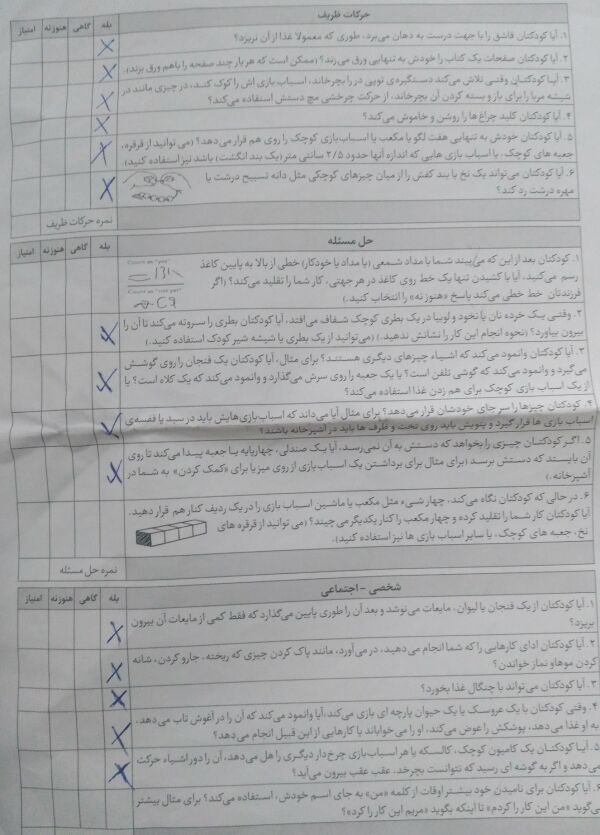 حرکات ظریف
بله گاهی هنوز نه امتیاز
۱. آیا کودکتان قاشق را با جهت درست به دهان می‌برد، طوری که معمولا غذا از آن نریزد؟
۲. آیا کودکتان صفحات یک کتاب را خودش به تنهایی ورق می‌زند؟ (ممکن است که هر بار چند صفحه را باهم ورق بزند).
۳. آیا کودکتان وقتی تلاش می‌کند دستگیره‌ی توپی در را بچرخاند، اسباب بازی اش را کوک کند، در چیزی مانند در
شیشه مربا را برای باز و بسته کردن آن بچرخاند، از حرکت چرخشی مچ دستش استفاده می‌کند؟
۴. آیا کودکتان کلید چراغ‌ها را روشن و خاموش می‌کند؟
۵. آیا کودکتان خودش به تنهایی هفت لگو یا مکعب یا اسباب‌بازی کوچک را روی هم قرار می‌دهد؟ (می توانید از قرقره،
جعبه های کوچک، یا اسباب بازی هایی که اندازه آنها حدود ۲/۵ سانتی متر (یک بند انگشت) باشد نیز استفاده کنید).
۶. آیا کودکتان می‌تواند یک نخ یا بند کفش را از میان چیزهای کوچکی مثل دانه تسبیح درشت یا
مهره درشت رد کند؟
نمره حرکات ظریف
حل مسئله
بله گاهی هنوز نه امتیاز
۱. کودکتان بعد از این که می‌بیند شما با مداد شمعی (یا مداد یا خودکار) خطی از بالا به پایین کاغذ
رسم می‌کنید، آیا با کشیدن تنها یک خط روی کاغذ در هر جهتی، کار شما را تقلید می‌کند؟ (اگر
فرزندتان خط خطی می‌کند پاسخ «هنوز نه» را انتخاب کنید.)
Count as "yes"
Count as "not yet"
۲. وقتی یک خرده نان یا نخود و لوبیا در یک بطری کوچک شفاف می‌افتد، آیا کودکتان بطری را سروته می‌کند تا آن را
بیرون بیاورد؟ (نحوه انجام این کار را نشانش ندهید.) (می‌توانید از یک بطری یا شیشه شیر کودک استفاده کنید.)
۳. آیا کودکتان وانمود می‌کند که اشیاء چیزهای دیگری هستند؟ برای مثال، آیا کودکتان یک فنجان را روی گوشش
می‌گیرد و وانمود می‌کند که گوشی تلفن است؟ یا یک جعبه را روی سرش می‌گذارد و وانمود می‌کند که یک کلاه است؟ یا
از یک اسباب بازی کوچک برای هم زدن غذا استفاده می‌کند؟
۴. کودکتان چیزها را سر جای خودشان قرار می‌دهد؟ برای مثال آیا می‌داند که اسباب‌بازی‌هایش باید در سبد یا قفسه‌ی
اسباب بازی ها قرار گیرد و پتویش باید روی تخت و ظرف ها باید در آشپزخانه باشند؟
۵. اگر کودکتان چیزی را بخواهد که دستش به آن نمی‌رسد، آیا یک صندلی، چهارپایه یا جعبه پیدا می‌کند تا روی
آن بایستد که دستش برسد (برای مثال برای برداشتن یک اسباب‌بازی از روی میز یا برای «کمک کردن» به شما در
آشپزخانه.)
۶. در حالی که کودکتان نگاه می‌کند، چهار شیء مثل مکعب یا ماشین اسباب بازی را در یک ردیف کنار هم قرار دهید.
آیا کودکتان کار شما را تقلید کرده و چهار مکعب را کنار یکدیگر می‌چیند؟ (می توانید از قرقره های
نخ، جعبه های کوچک، یا سایر اسباب بازی ها نیز استفاده کنید).
نمره حل مسئله
شخصی - اجتماعی
بله گاهی هنوز نه امتیاز
۱. آیا کودکتان از یک فنجان یا لیوان، مایعات می‌نوشد و بعد آن را طوری پایین می‌گذارد که فقط کمی از مایعات آن بیرون
بریزد؟
۲. آیا کودکتان ادای کارهایی را که شما انجام می‌دهید، در می‌آورد، مانند پاک کردن چیزی که ریخته، جارو کردن، شانه
کردن موها و نماز خواندن؟
۳. آیا کودکتان می‌تواند با چنگال غذا بخورد؟
۴. وقتی کودکتان با یک عروسک یا یک حیوان پارچه ای بازی می‌کند، آیا وانمود می‌کند که آن را در آغوش تاب می‌دهد،
به او غذا می‌دهد، پوشکش را عوض می‌کند، او را می‌خواباند یا کارهایی از این قبیل انجام می‌دهد؟
۵. آیا کودکتان یک کامیون کوچک، کالسکه یا هر اسباب‌بازی چرخ‌دار دیگری را هل می‌دهد، آن را دور اشیاء حرکت
می‌دهد و اگر به گوشه ای رسید که نتوانست بچرخد، عقب عقب بیرون می‌آید؟
۶. آیا کودکتان برای نامیدن خود بیشتر اوقات از کلمه «من» به جای اسم خودش، استفاده می‌کند؟ برای مثال بیشتر
می‌گوید «من این کار را کردم» تا اینکه بگوید «مریم این کار را کرد»؟